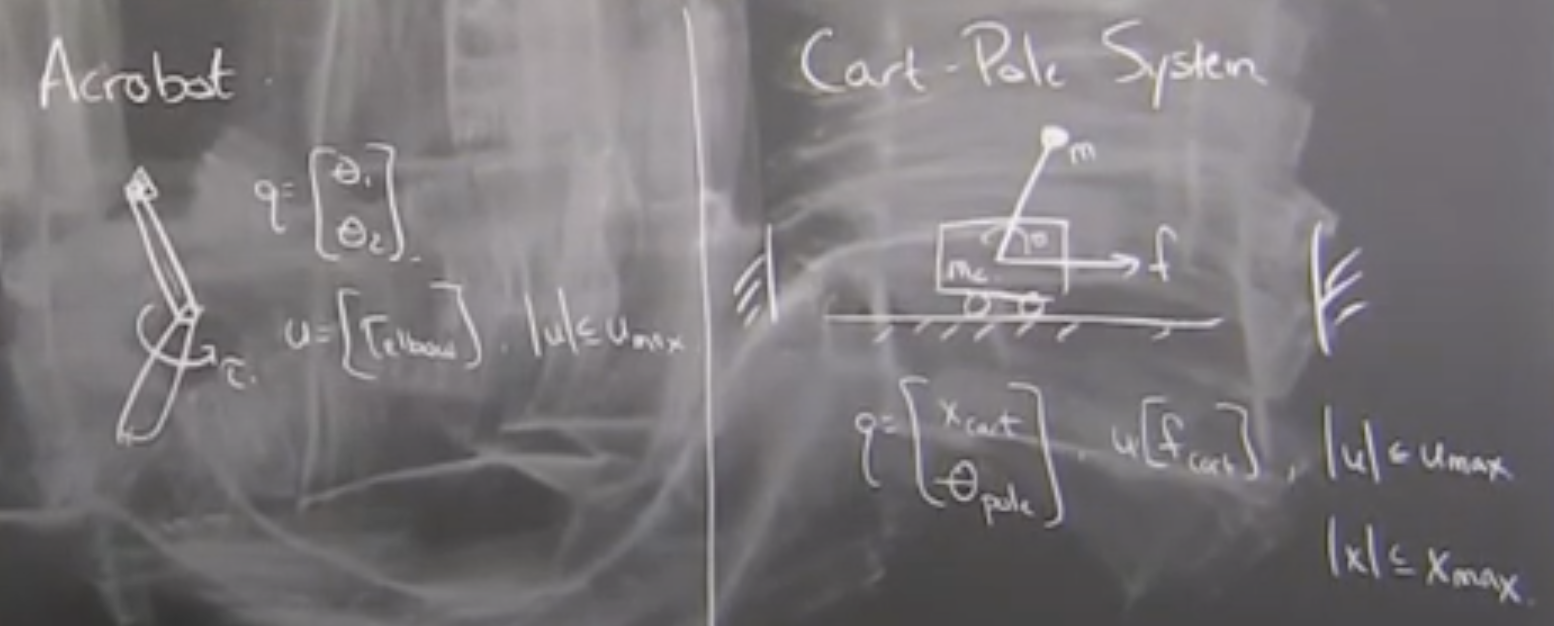 Acrobot
q = [θ₁
θ₂].
u = [τ_elbow]. |u| ≤ u_max
τ.
Cart-Pole System
m
θ
m_c
f
q = [x_cart
θ_pole], u[f_cart], |u| ≤ u_max
|x| ≤ x_max.